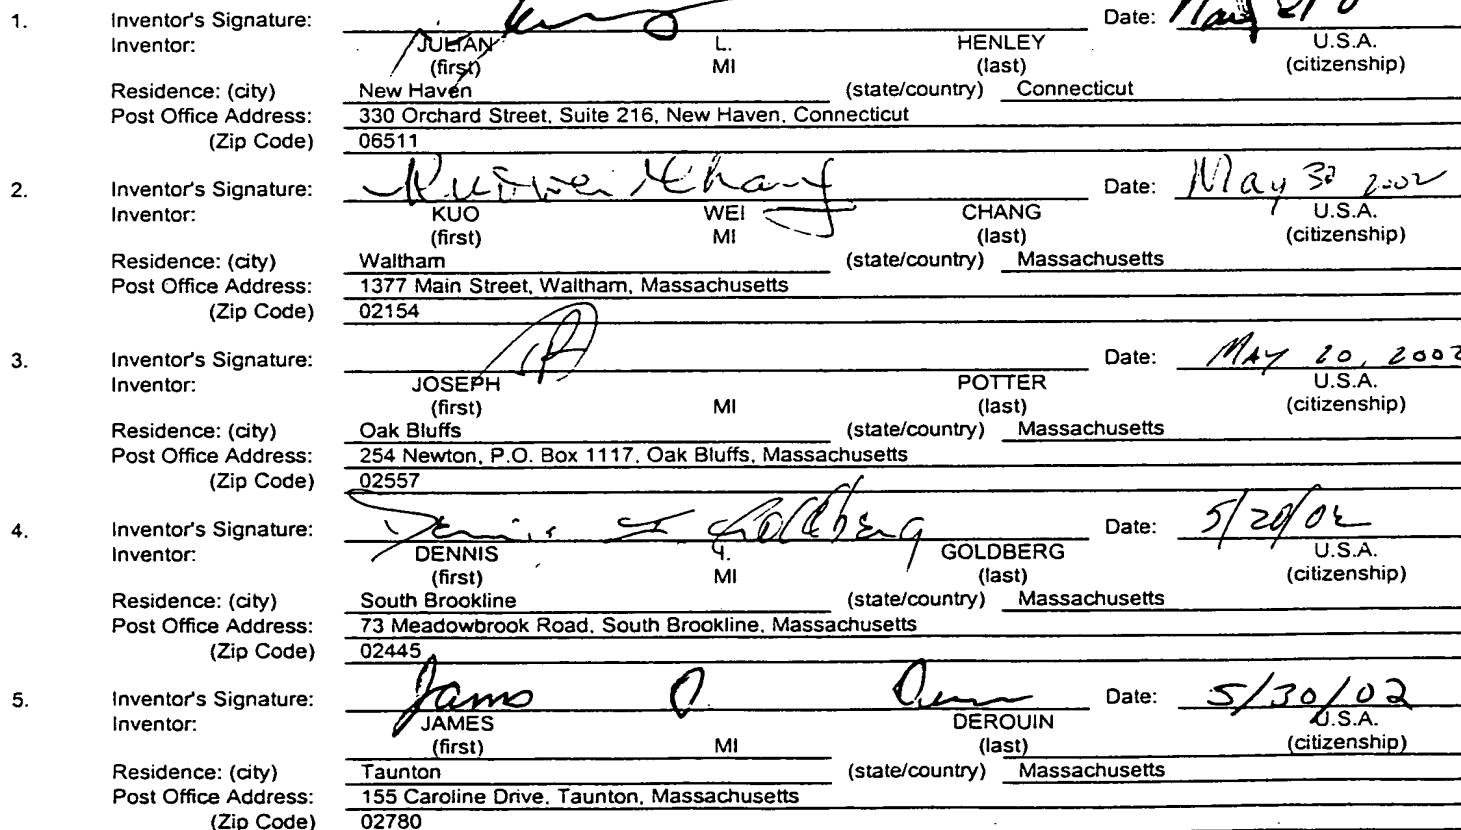 1. Inventor's Signature: Date: May
Inventor: JULIAN L. HENLEY U.S.A.
(first) MI (last) (citizenship)
Residence: (city) New Haven (state/country) Connecticut
Post Office Address: 330 Orchard Street, Suite 216, New Haven, Connecticut
(Zip Code) 06511
2. Inventor's Signature: Kuo Wei Chang Date: May 30 2002
Inventor: KUO WEI CHANG U.S.A.
(first) MI (last) (citizenship)
Residence: (city) Waltham (state/country) Massachusetts
Post Office Address: 1377 Main Street, Waltham, Massachusetts
(Zip Code) 02154
3. Inventor's Signature: Date: MAY 20, 2002
Inventor: JOSEPH POTTER U.S.A.
(first) MI (last) (citizenship)
Residence: (city) Oak Bluffs (state/country) Massachusetts
Post Office Address: 254 Newton, P.O. Box 1117, Oak Bluffs, Massachusetts
(Zip Code) 02557
4. Inventor's Signature: Dennis I. Goldberg Date: 5/20/02
Inventor: DENNIS GOLDBERG U.S.A.
(first) MI (last) (citizenship)
Residence: (city) South Brookline (state/country) Massachusetts
Post Office Address: 73 Meadowbrook Road, South Brookline, Massachusetts
(Zip Code) 02445
5. Inventor's Signature: James Date: 5/30/02
Inventor: JAMES DEROUIN U.S.A.
(first) MI (last) (citizenship)
Residence: (city) Taunton (state/country) Massachusetts
Post Office Address: 155 Caroline Drive, Taunton, Massachusetts
(Zip Code) 02780